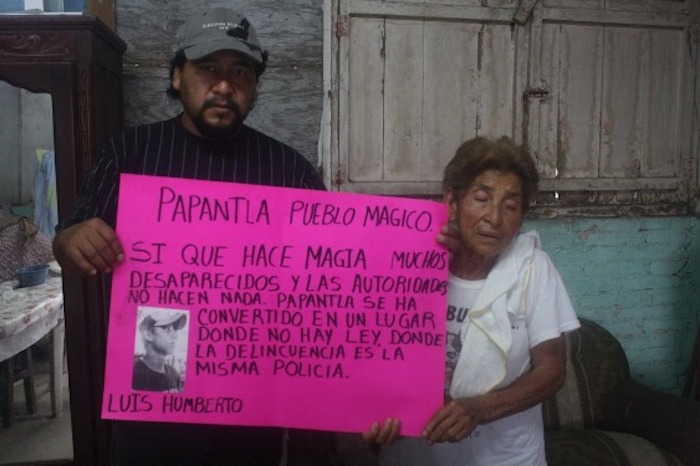 PAPANTLA PUEBLO MAGICO.
SI QUE HACE MAGIA MUCHOS
DESAPARECIDOS Y LAS AUTORIDADES
NO HACEN NADA. PAPANTLA SE HA
CONVERTIDO EN UN LUGAR
DONDE NO HAY LEY, DONDE
LA DELINCUENCIA ES LA
MISMA POLICIA.
LUIS HUMBERTO